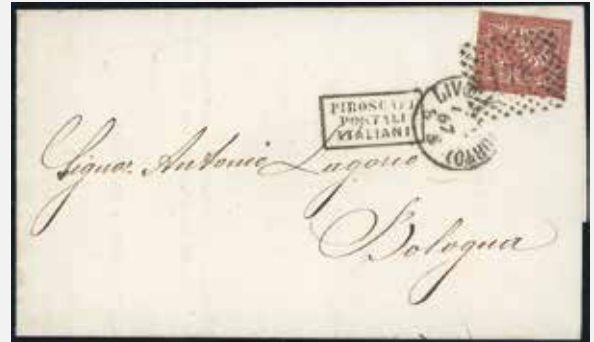 PIROSCAFI
POSTALI
ITALIANI
LIVORNO
(PORTO)
67
Signor Antonio Lugone
Bologna